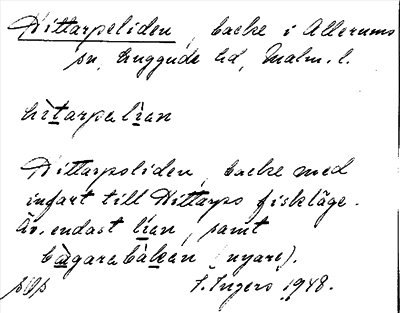 Hittarpeliden, backe i Allerums
sn, Luggude hd, Malm. l.
hìtarpalìan
Hittarpsliden, backe med
infart till Hittarps fiskläge.
Äv. endast lían, samt
bàgarabàkan (nyare).
I. Ingers 1948.